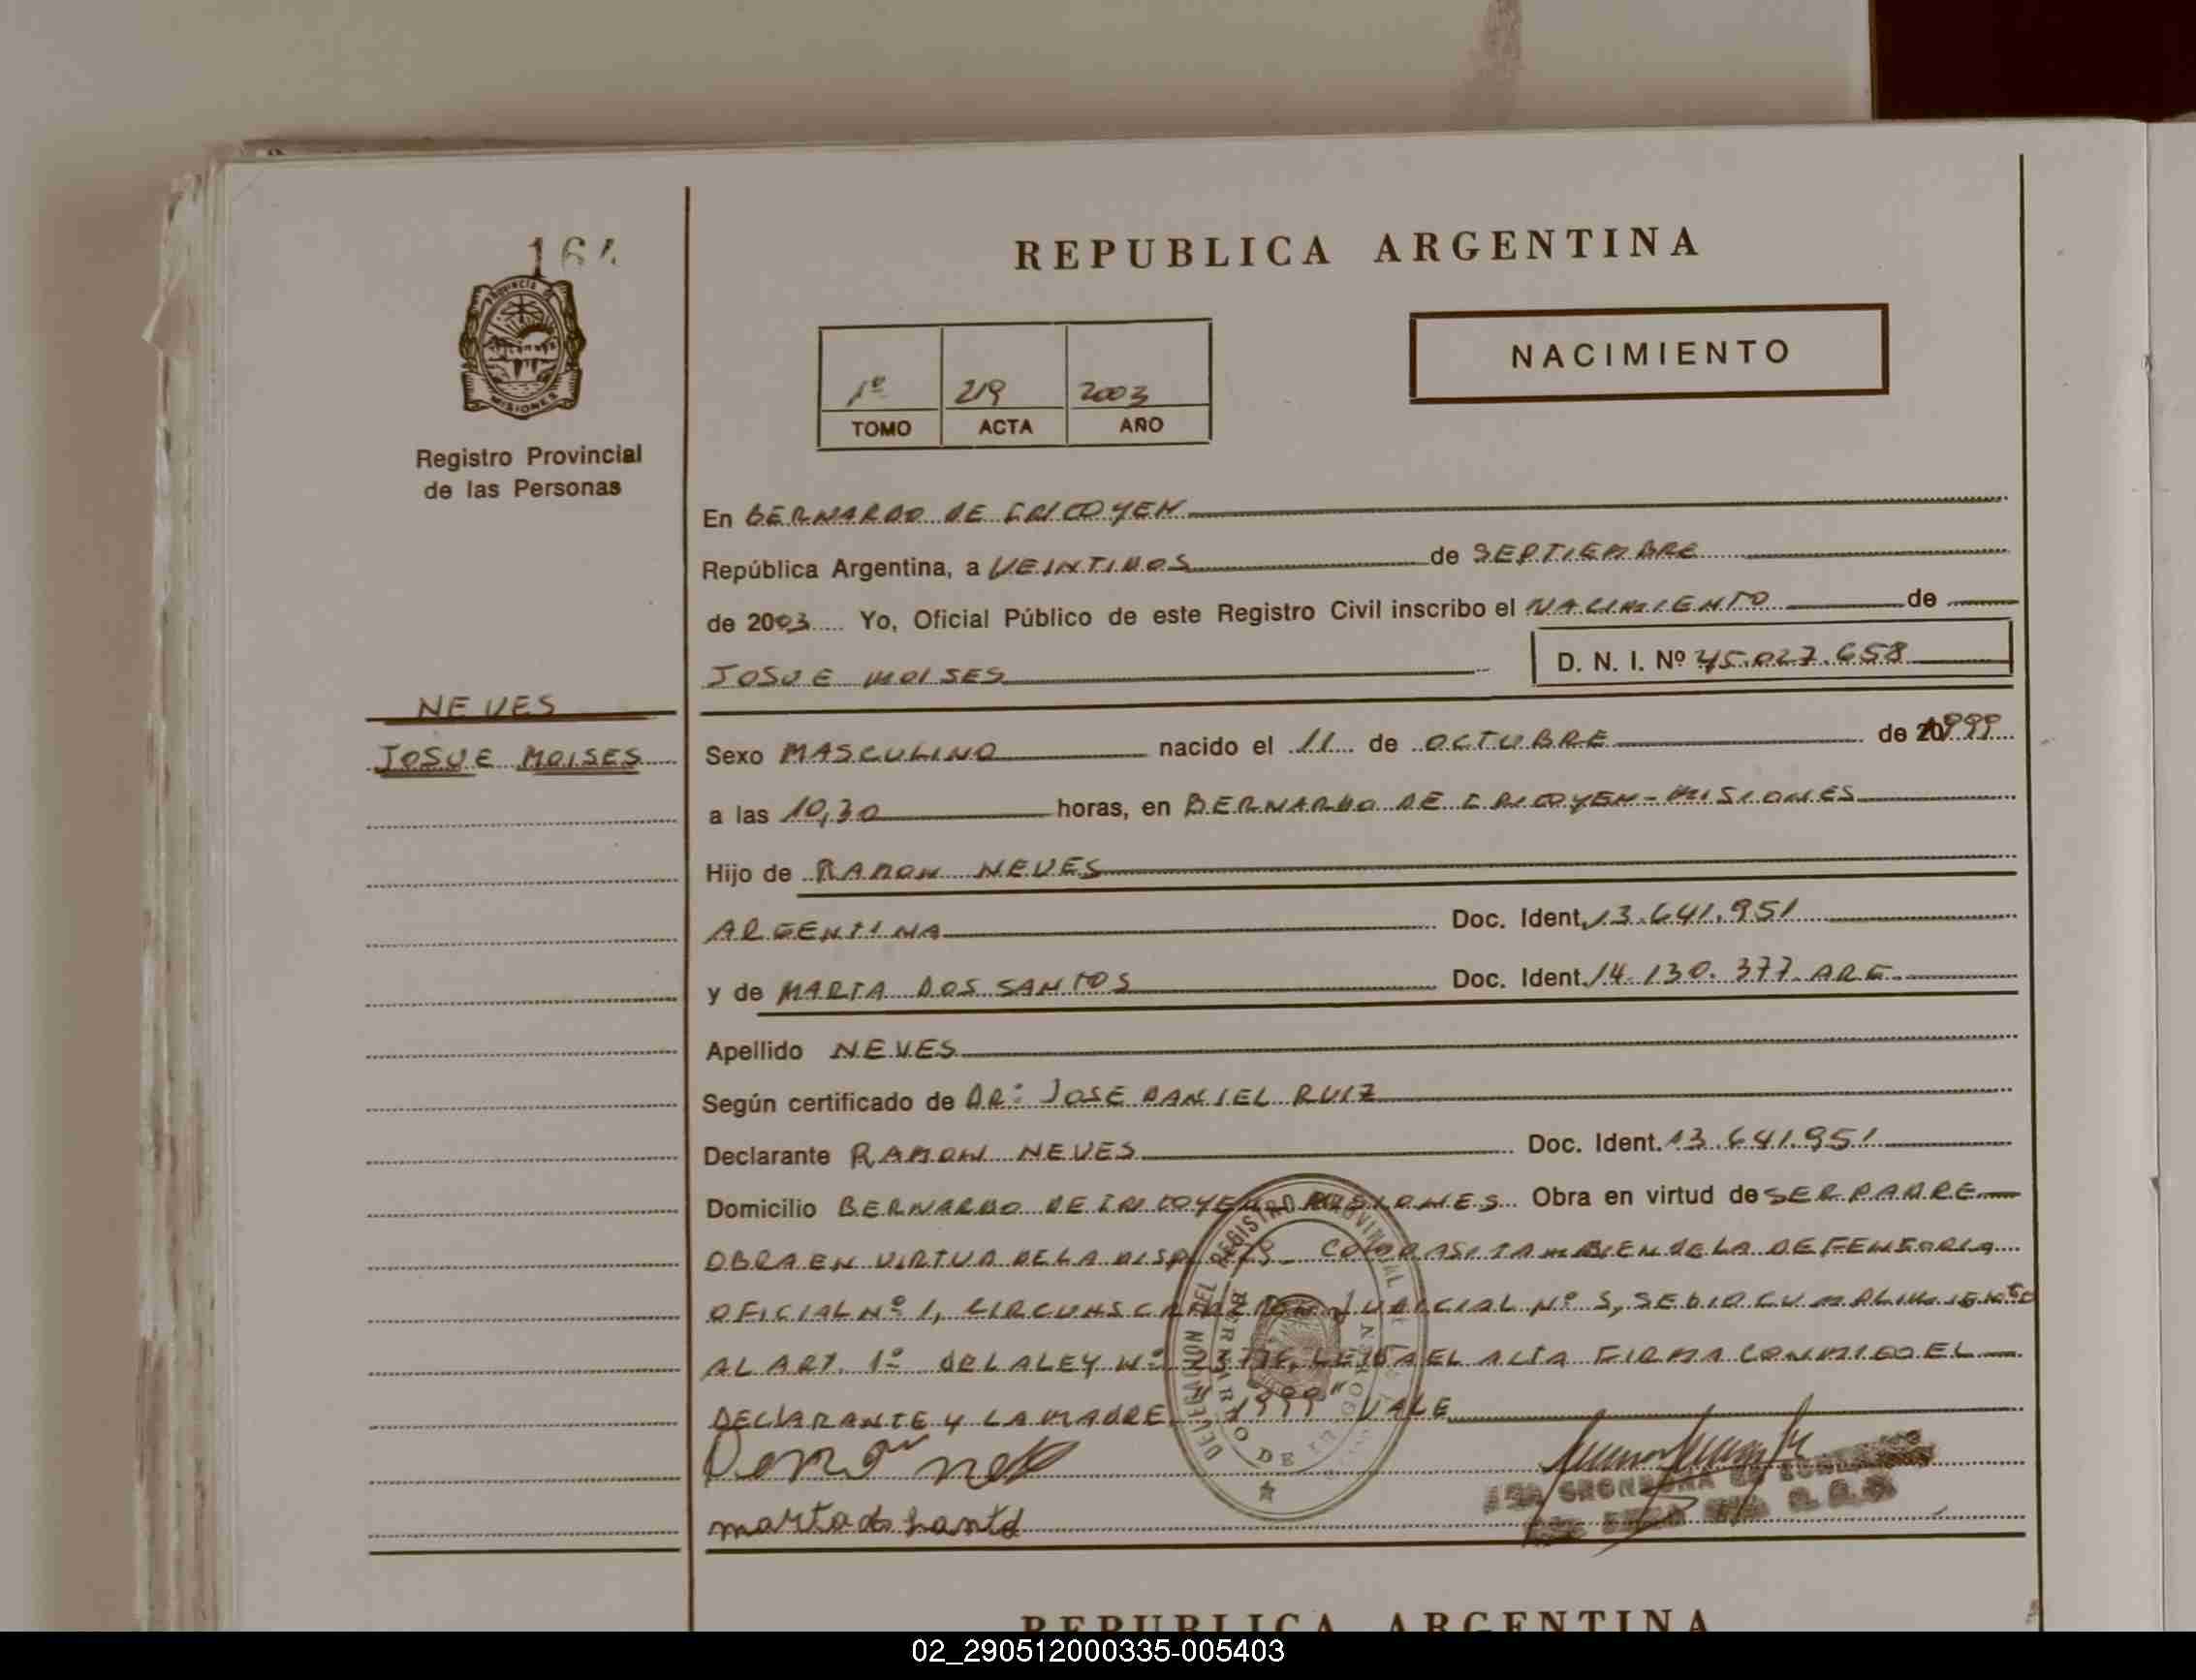 164
REPUBLICA ARGENTINA
PROVINCIA DE
MISIONES
1º 219 2003
TOMO ACTA AÑO
NACIMIENTO
Registro Provincial
de las Personas
En BERNARDO DE IRIGOYEN
República Argentina, a VEINTIDOS de SEPTIEMBRE
de 2003 Yo, Oficial Público de este Registro Civil inscribo el NACIMIENTO de
JOSUE MOISES D. N. I. Nº 45.027.658
NEVES
JOSUE MOISES
Sexo MASCULINO nacido el 11 de OCTUBRE de 1999
a las 10,30 horas, en BERNARDO DE IRIGOYEN - MISIONES
Hijo de RAMON NEVES
ARGENTINA Doc. Ident. 13.641.951
y de MARTA DOS SANTOS Doc. Ident. 14.130.377 ARG
Apellido NEVES
Según certificado de DR: JOSE DANIEL RUIZ
Declarante RAMON NEVES Doc. Ident. 13.641.951
Domicilio BERNARDO DE IRIGOYEN MISIONES Obra en virtud de SER PADRE
OBRA EN VIRTUD DE LA DISP. COMO ASI TAMBIEN DE LA DEFENSORIA
OFICIAL Nº 1, CIRCUNSCRIPCION JUDICIAL Nº 5, SE DIO CUMPLIMIENTO
AL ART. 1º DE LA LEY Nº LEIDA EL ACTA FIRMA CONMIGO EL
DECLARANTE Y LA MADRE "1999" VALE
DELEGACION DEL REGISTRO PROVINCIAL
BERNARDO DE
marta dos santo
REPUBLICA ARGENTINA
02_290512000335-005403